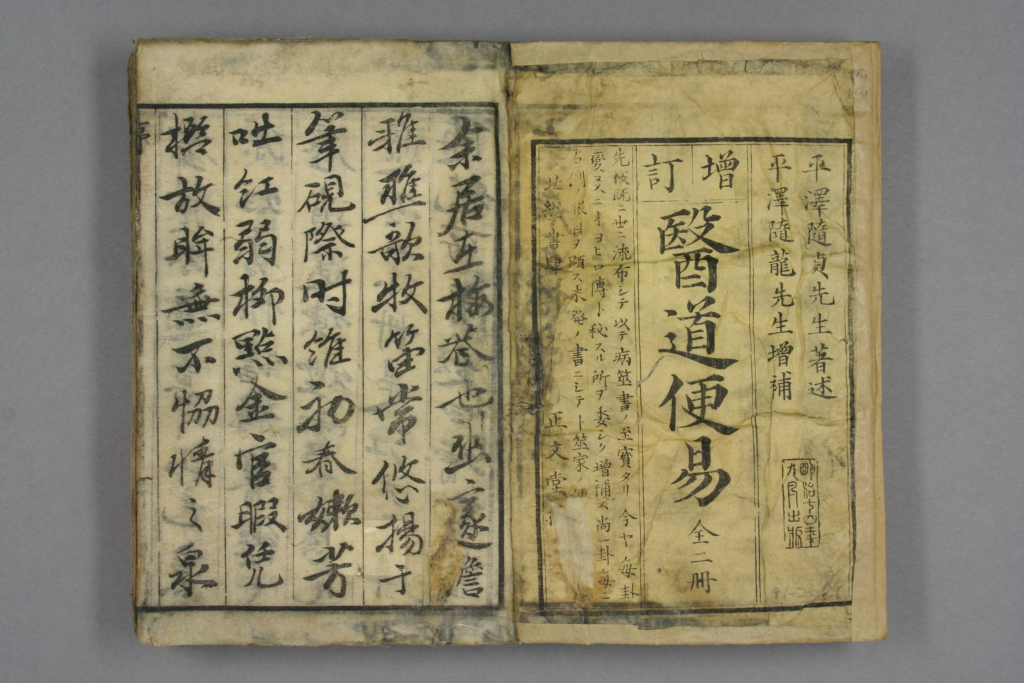 平澤隨貞先生著述
平澤隨龍先生增補
增訂
醫道便易
全二冊
先板既ニ世ニ流布シテ以テ病筮書ノ至寶タリ今ヤ毎卦
變爻ニオヨヒロ傳ト秘スル所ヲ委シク增補ス尚一卦毎ニ
眼目ヲ顕ス未發ノ書ニシテ卜筮家ノ
書肆 正文堂
余居在梅巷也幽邃詹
雅樵歌牧笛常悠揚于
筆硯際时維初春嫩芳
吐紅弱柳點金官暇凭
檻放眸無不恊情之泉
序